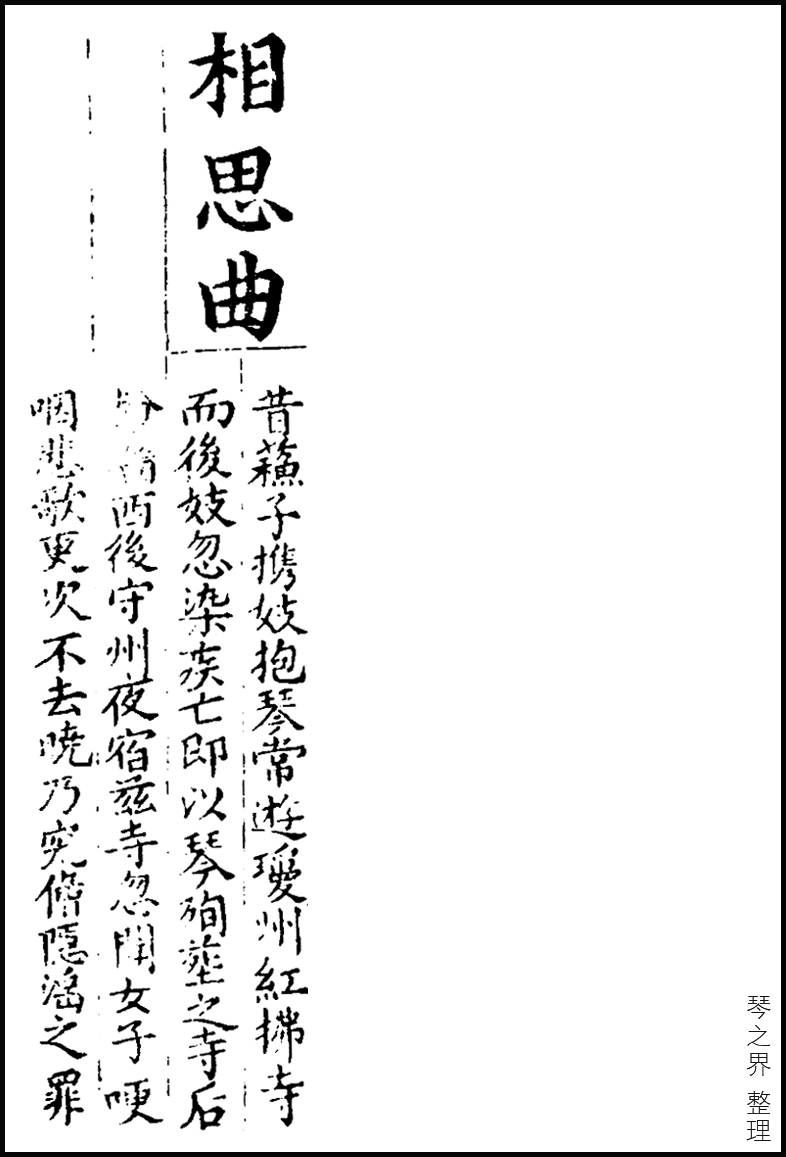 相思曲
昔蘓子携妓抱琴常遊瓊州紅拂寺
而後妓忽染疾亡即以琴殉塟之寺后
西後守州夜宿茲寺忽聞女子哽
咽悲歌更次不去曉乃究僧隱滛之罪
琴之界 整理